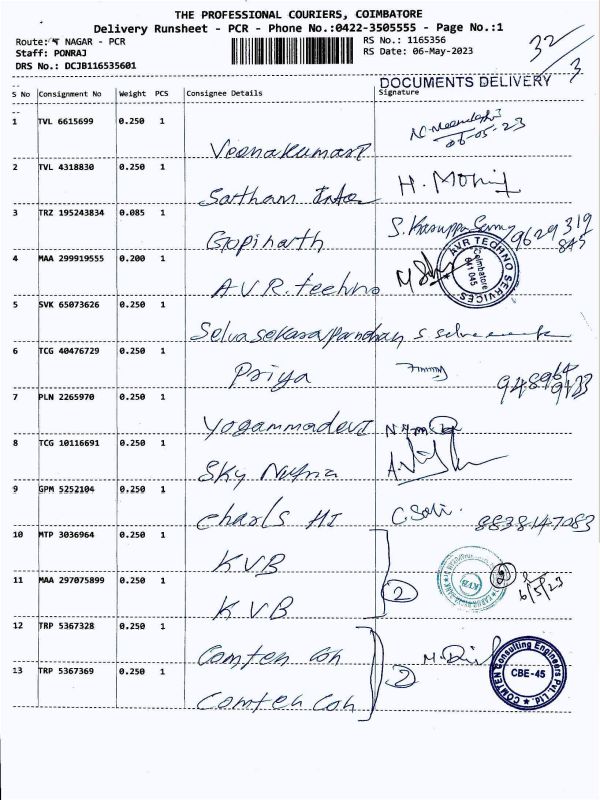 THE PROFESSIONAL COURIERS, COIMBATORE
Delivery Runsheet - PCR - Phone No.:0422-3505555 - Page No.:1
Route: NAGAR - PCR
Staff: PONRAJ
DRS No.: DCJB116535601
RS No.: 1165356
RS Date: 06-May-2023
32/3
DOCUMENTS DELIVERY
S No Consignment No Weight PCS Consignee Details Signature
1 TVL 6615699 0.250 1 Veenakumari 06-05-23
2 TVL 4318830 0.250 1 Saitham H. Mohit
3 TRZ 195243834 0.085 1 Gopinath 9629319
845
4 MAA 299919555 0.200 1 A.V.R. techno
AVR TECHNO SERVICES
Coimbatore
641 045
5 SVK 65073626 0.250 1 Selvasekarapandian
6 TCG 40476729 0.250 1 Priya
7 PLN 2265970 0.250 1 Yogammadevi
8 TCG 10116691 0.250 1 Sky
9 GPM 5252104 0.250 1 charls 8838147083
10 MTP 3036964 0.250 1 KVB
11 MAA 297075899 0.250 1 KVB 2
KVB
6/5/23
12 TRP 5367328 0.250 1 Comten Con
13 TRP 5367369 0.250 1 Comten Con 2
COMTEN Consulting Engineers PVT. Ltd
CBE-45